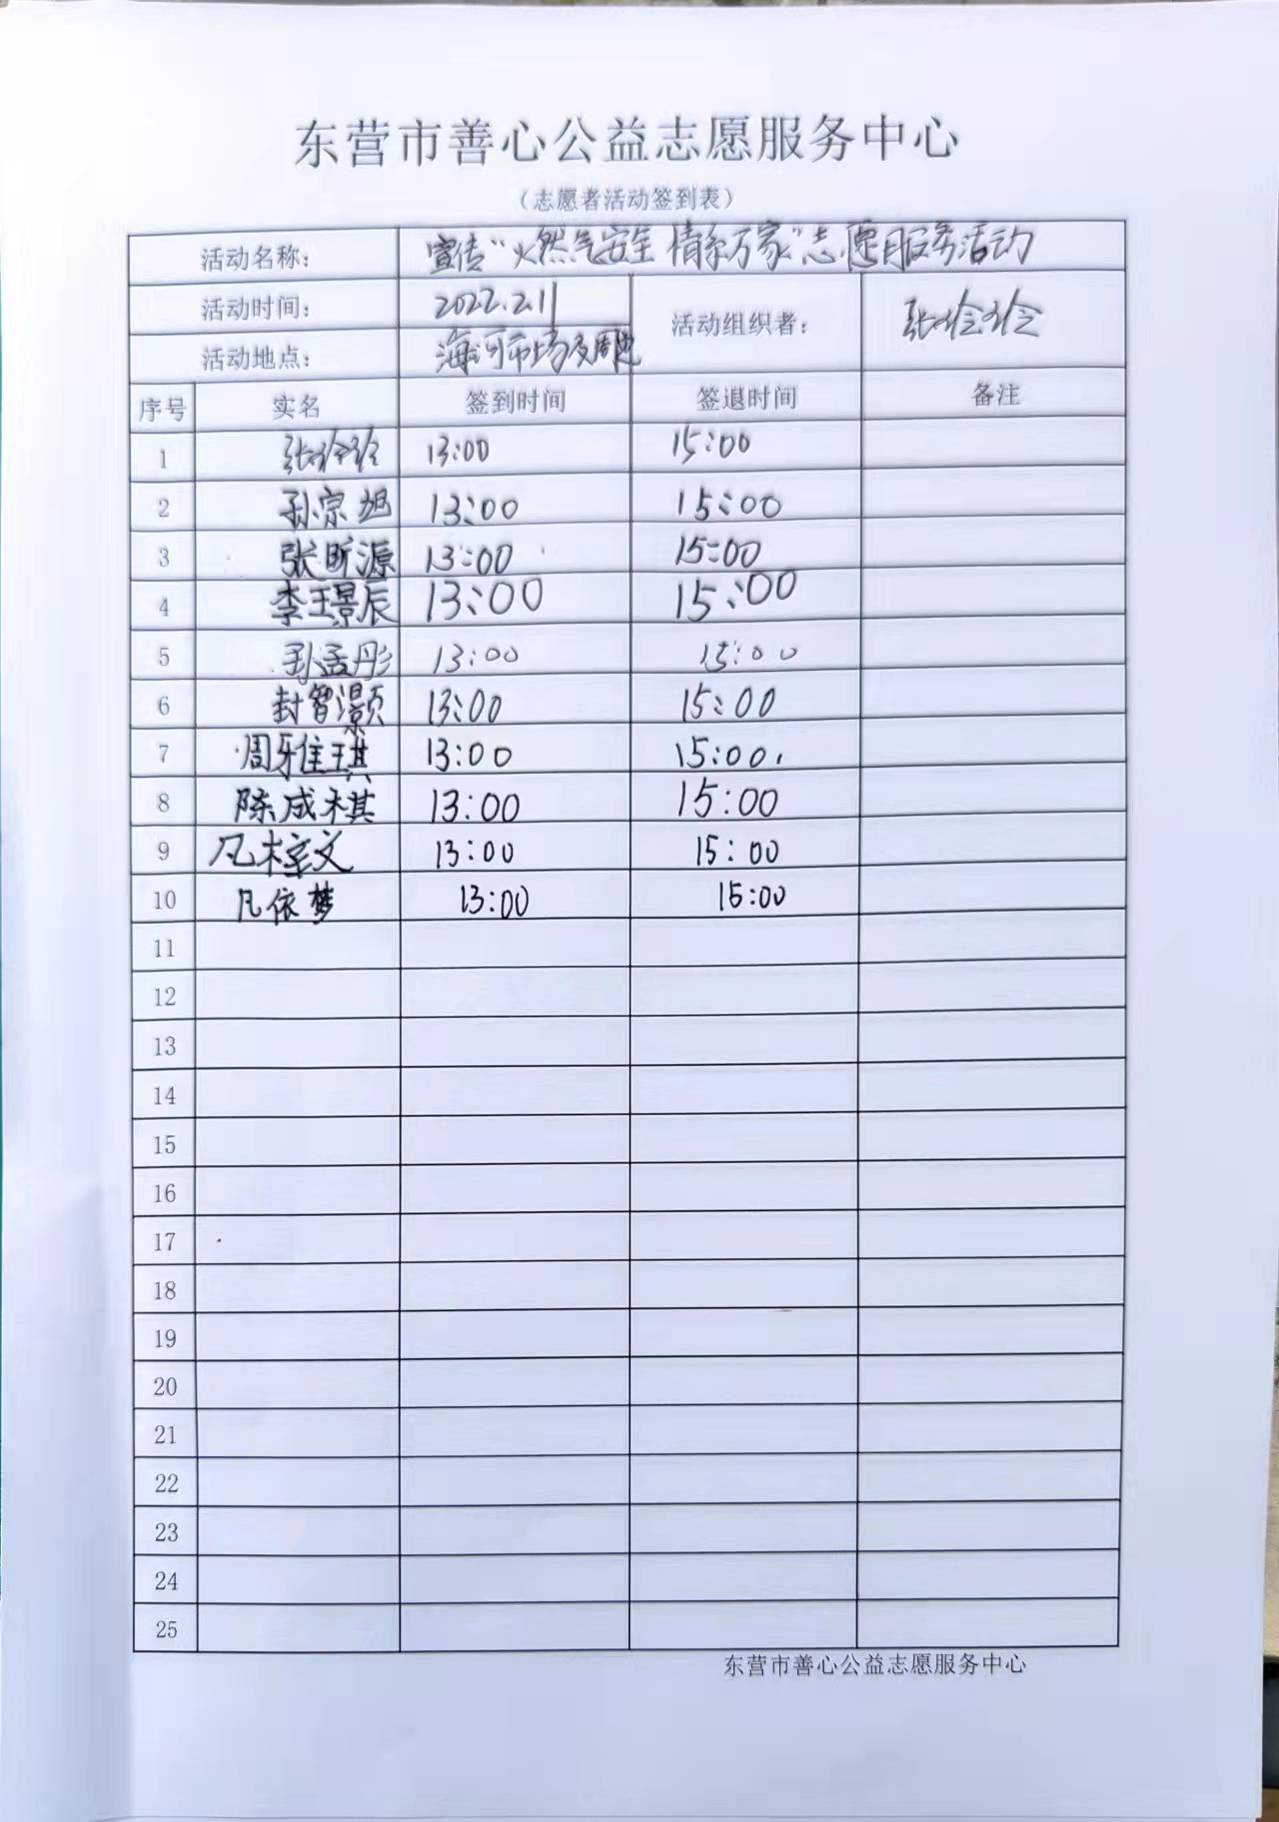 东营市善心公益志愿服务中心
（志愿者活动签到表）
活动名称： 宣传“燃气安全 情系万家”志愿服务活动
活动时间： 2022.2.11 活动组织者： 张玲玲
活动地点： 海河市场及周边
序号 实名 签到时间 签退时间 备注
1 张玲玲 13:00 15:00
2 孙宗旭 13:00 15:00
3 张昕源 13:00 15:00
4 李王景辰 13:00 15:00
5 孙孟彤 13:00 15:00
6 封智灏 13:00 15:00
7 周雅琪 13:00 15:00
8 陈成棋 13:00 15:00
9 凡梓文 13:00 15:00
10 凡依梦 13:00 15:00
11
12
13
14
15
16
17
18
19
20
21
22
23
24
25
东营市善心公益志愿服务中心